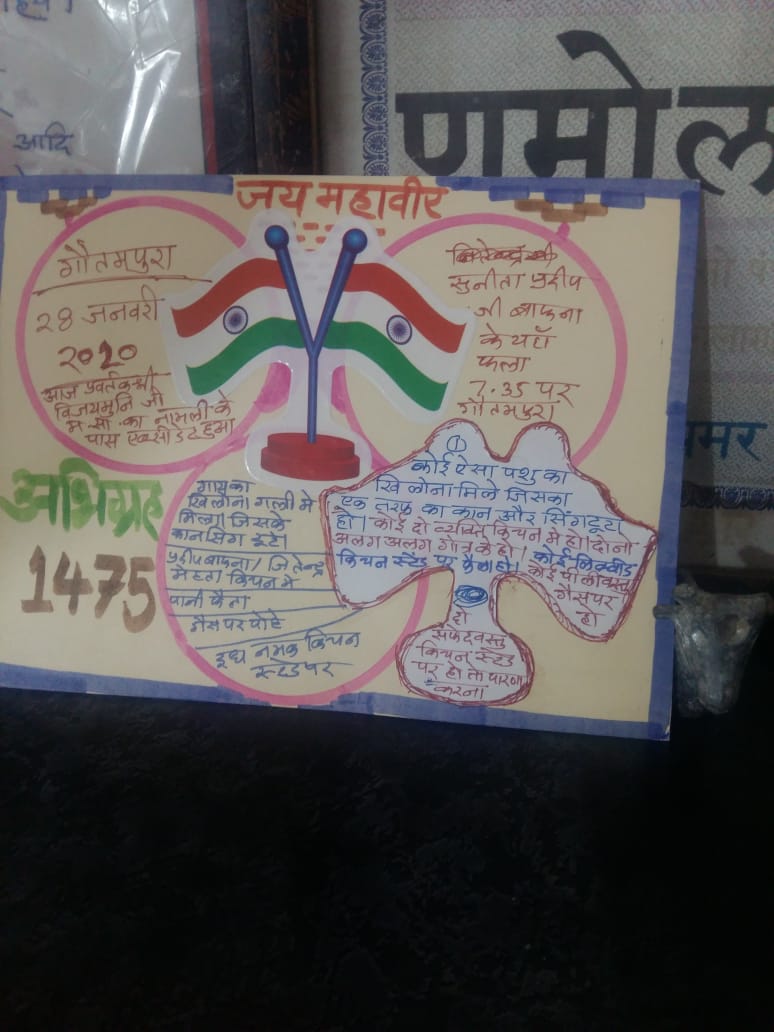 आदि
णमोल
जय महावीर
गौतमपुरा
28 जनवरी
2020
आज प्रवर्तक श्री
विजयमुनि जी
म सा. का नामली के
पास एक्सीडेंट हुआ
सुनीता प्रदीप
जी बाफना
के यहाँ
फला
7.35 पर
गौतमपुरा
अभिग्रह
1475
गाय का
खिलौना गल्ली मे
मिला जिसके
कान सिंग टूटे।
प्रदीप बाफना / जितेन्द्र
मेहता किचन मे
पानी फैला
गैस पर पोहे
दूध नमक किचन
स्टेंड पर
①
कोई ऐसा पशु का
खिलोना मिले जिसका
एक तरफ का कान और सिंग टूटा
हो। कोई दो व्यक्ति किचन मे हो। दोनो
अलग अलग गोत्र के हो। कोई लिक्वीड
किचन स्टेंड पर फैला हो। कोई पीली वस्तु
गैस पर
हो
दो
सफेद वस्तु
किचन स्टेंड
पर हो तो पारणा
करना